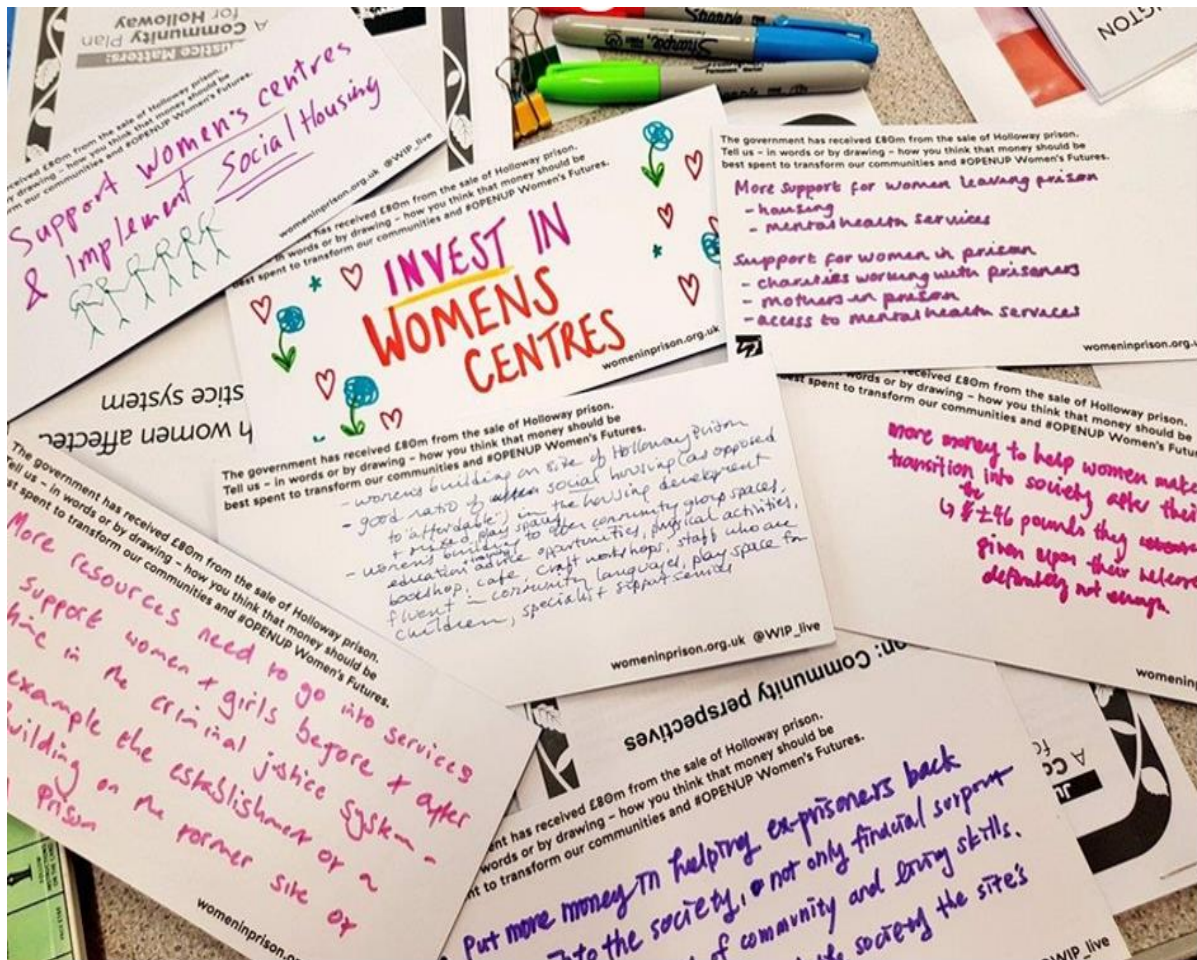 Justice Matters:
A Community Plan
for Holloway
Sharpie
Sharpie
INGTON
received £80m from the sale of Holloway prison.
by drawing – how you think that money should be
communities and #OPENUP Women's Futures.
Support women's centres
& Implement Social Housing
womeninprison.org.uk @WIP_live
has received £80m from the sale of Holloway prison.
in words or by drawing – how you think that money should be
best spent to transform our communities and #OPENUP Women's Futures.
INVEST IN
WOMENS
CENTRES
womeninprison.org.uk
The government has received £80m from the sale of Holloway prison.
Tell us – in words or by drawing – how you think that money should be
best spent to transform our communities and #OPENUP Women's Futures.
More support for women leaving prison
- housing
- mental health services
Support for women in prison
- charities working with prisoners
- mothers in prison
- access to mental health services
womeninprison.org.u
h women affected
stice system
The government has received £80m from the sale of Holloway prison.
Tell us – in words or by drawing – how you think that money should be
best spent to transform our communities and #OPENUP Women's Futures.
- womens building on site of Holloway Prison
- good ratio of social housing (as opposed
to 'affordable') in the housing development
+ play space
- womens building to offer community group spaces,
education, training, advice opportunities, physical activities,
bookshop, cafe, craft workshops, staff who are
fluent in community languages, play space for
children, specialist support services
womeninprison.org.uk @WIP_live
received £80m from the sale of Holloway prison.
words or by drawing – how you think that money should be
est spent to transform our communities and #OPENUP Women's Futures
more money to help women make
transition into society after their
↳ the £46 pounds they
given upon their release
definitely not enough.
womenin
The government has received £80m from the sale of Holloway prison.
Tell us – in words or by drawing – how you think that money should be
st spent to transform our communities and #OPENUP Women's Futures.
More resources need to go into services
support women + girls before + after
time in the criminal justice system -
example the establishment of a
uilding on the former site of
prison
womeninprison.o
on: Community perspectives
A Co
fo
ent has received £80m from the sale of Holloway prison.
words or by drawing – how you think that money should be
nt to transform our communities and #OPENUP Women's Futures.
Put more money in helping ex-prisoners back
into the society, not only financial support
of community and living skills.
society the site's
@WIP_live